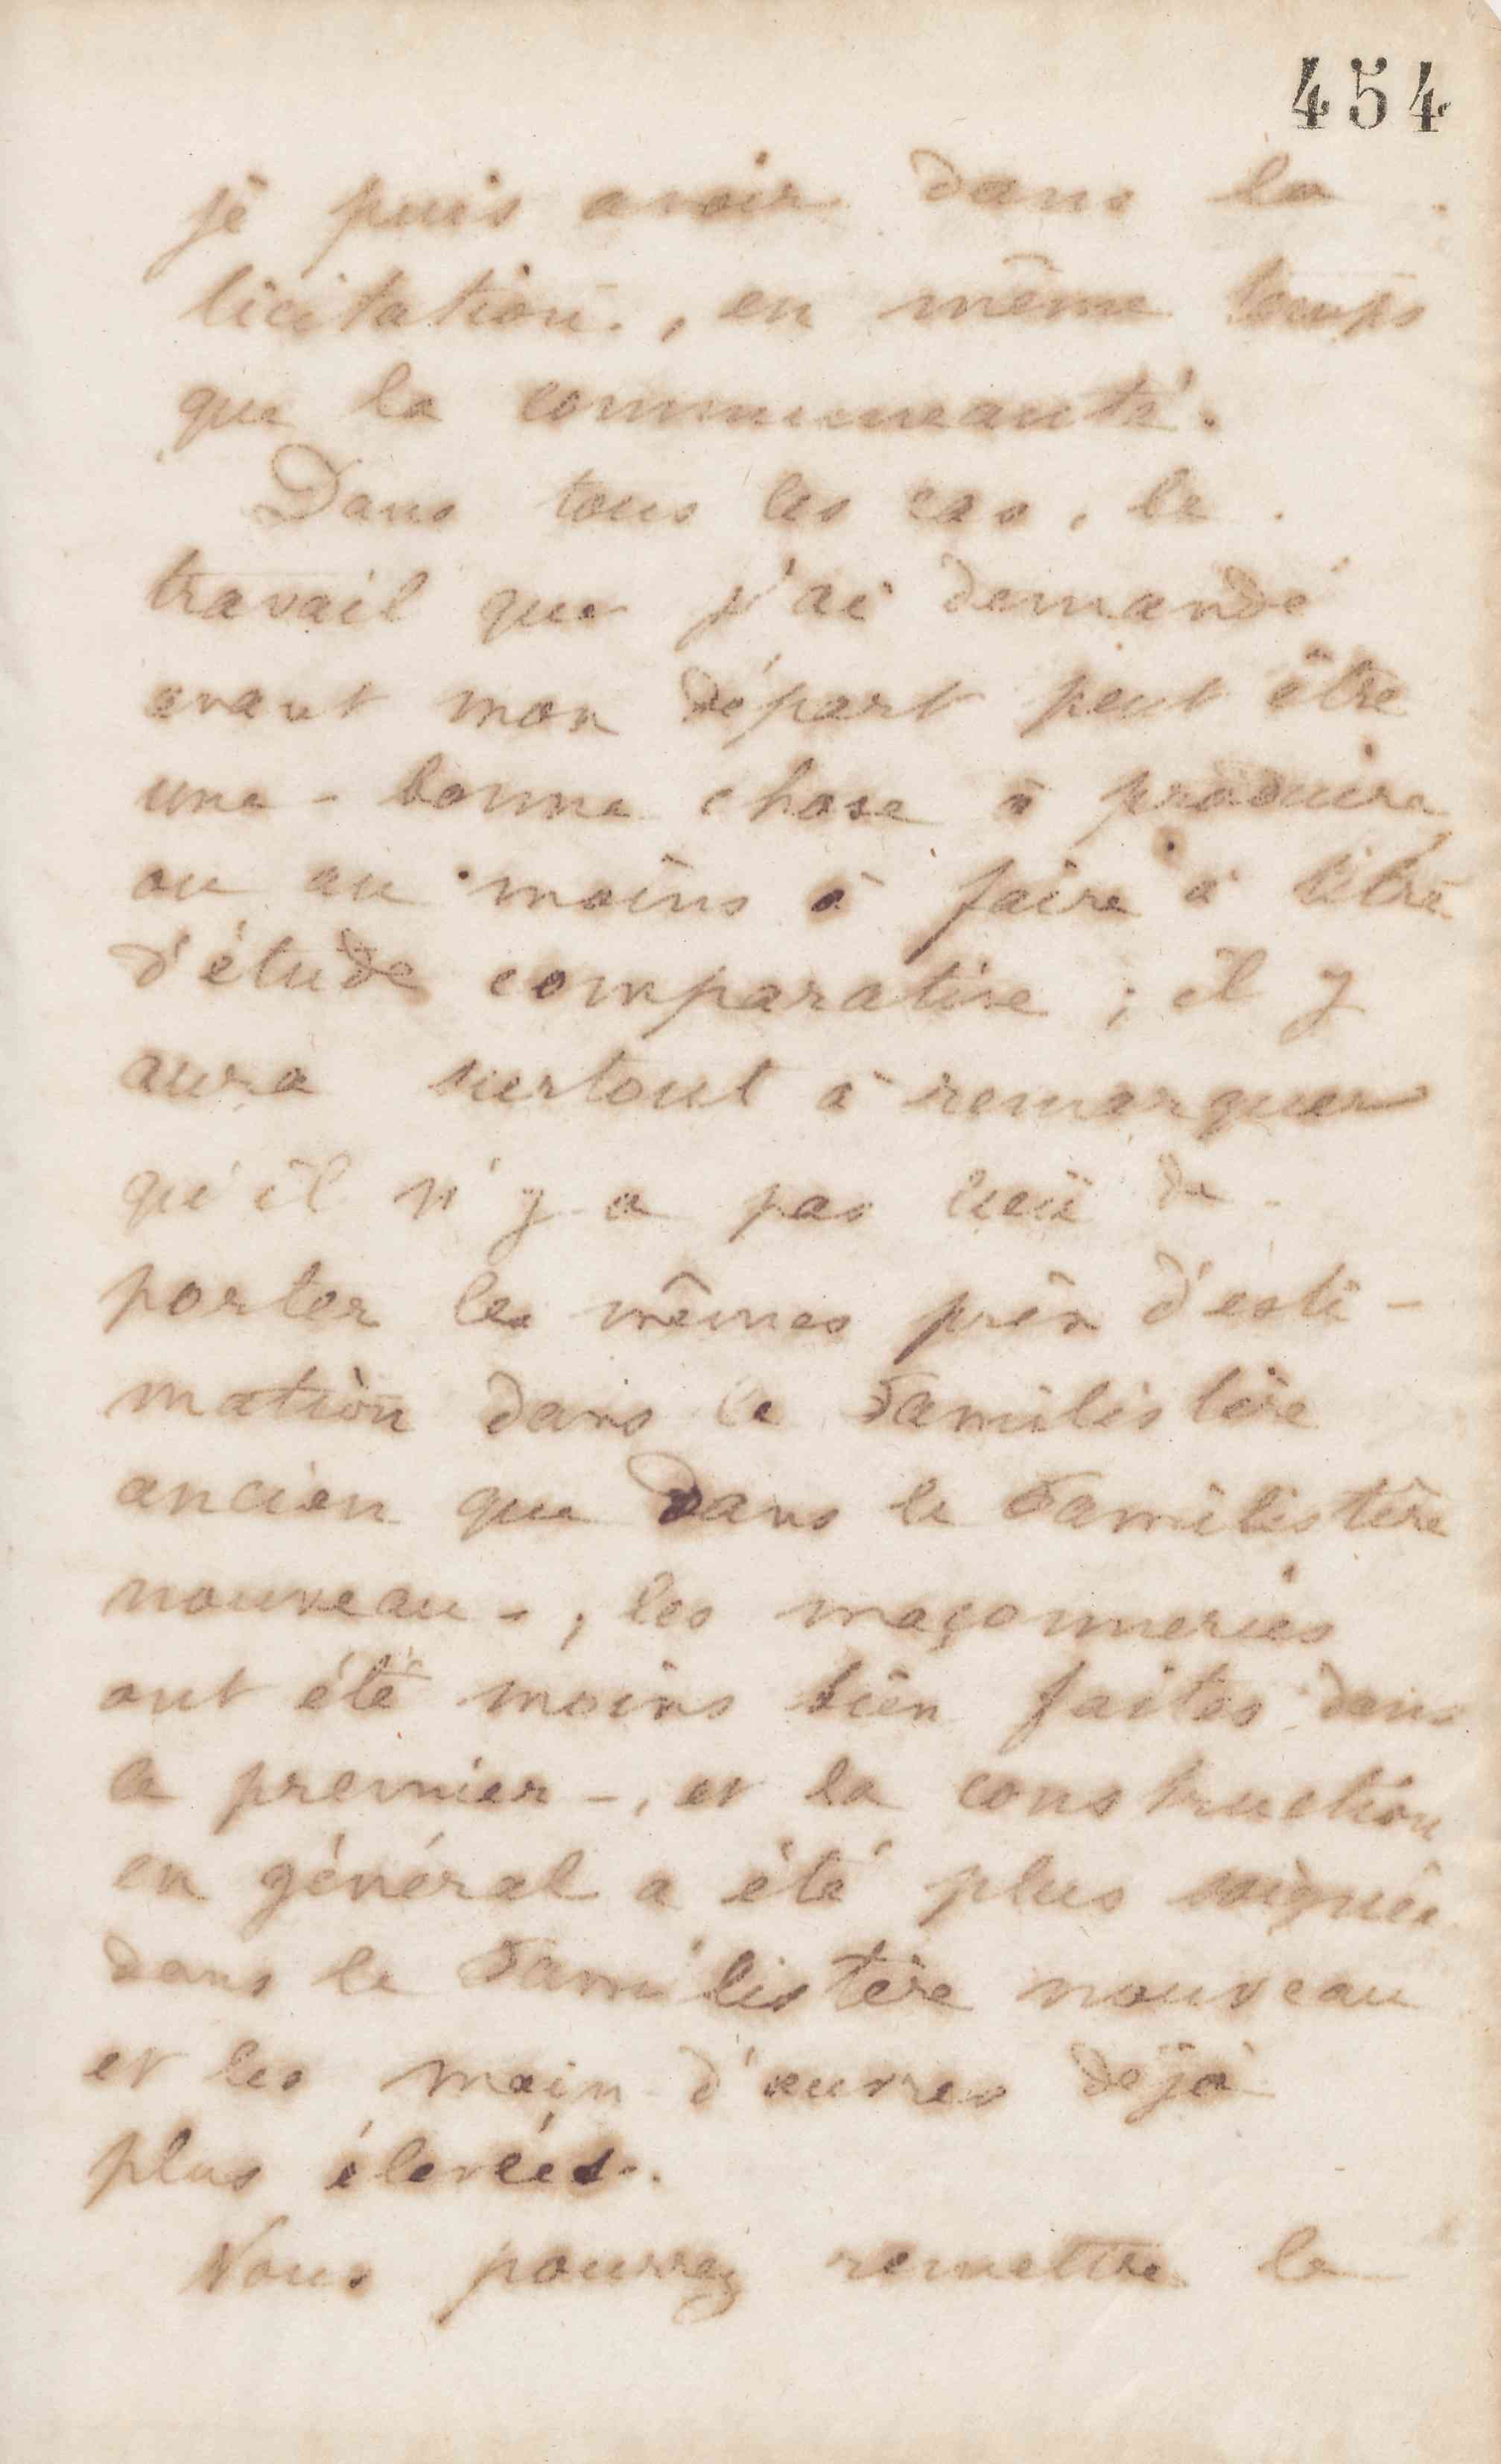 454
je puis avoir dans la
licitation, en même temps
que la communeauté.
Dans tous les cas, le
travail que j'ai demandé
avant mon départ peut être
une bonne chose à produire
ou au moins à faire à titre
d'étude comparative ; il y
aura surtout à remarquer
qu'il n'y a pas lieu de
porter les mêmes prix d'esti-
mation dans le Familistère
ancien que dans le Familistère
nouveau -, les maçonneries
ont été moins bien faites dans
le premier -, et la construction
en général a été plus soignée
dans le Familistère nouveau
et les main d'œuvres déjà
plus élevées.
Vous pourrez remettre le